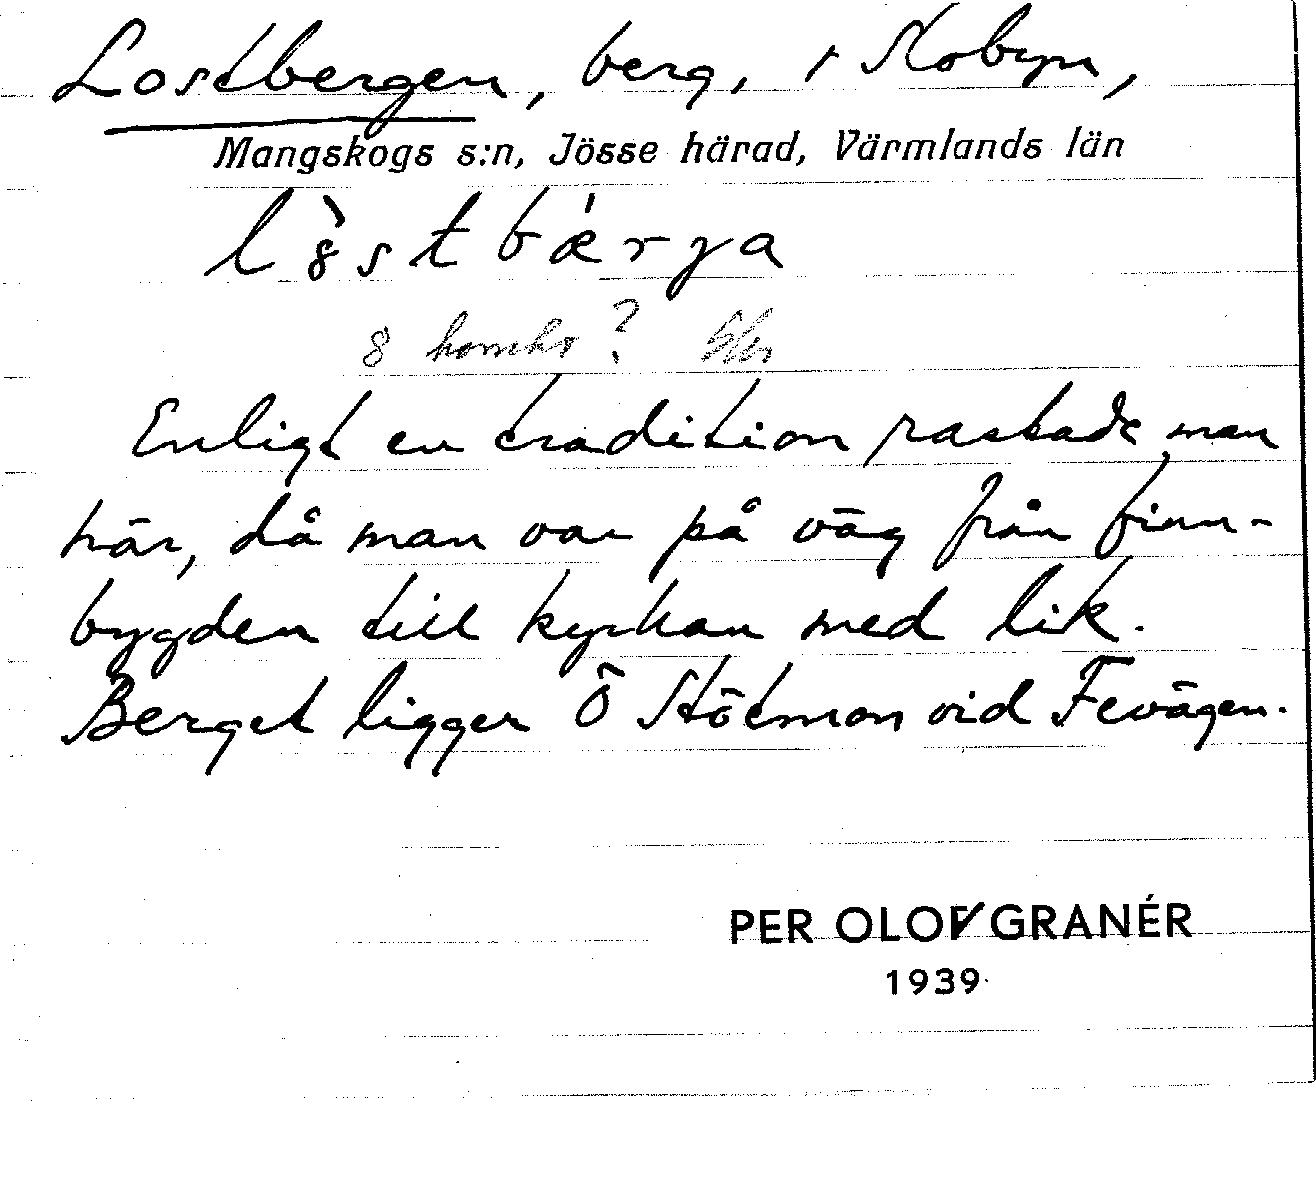 Lostbergen, berg, i Nobyn,
Mangskogs s:n, Jösse härad, Värmlands län
l8̀stbǽrja
8
Enligt en tradition rastade man
här, då man var på väg från finn-
bygden till kyrkan med lik.
Berget ligger Ö Stötmon vid Fevägen.
PER OLOV GRANÉR
1939